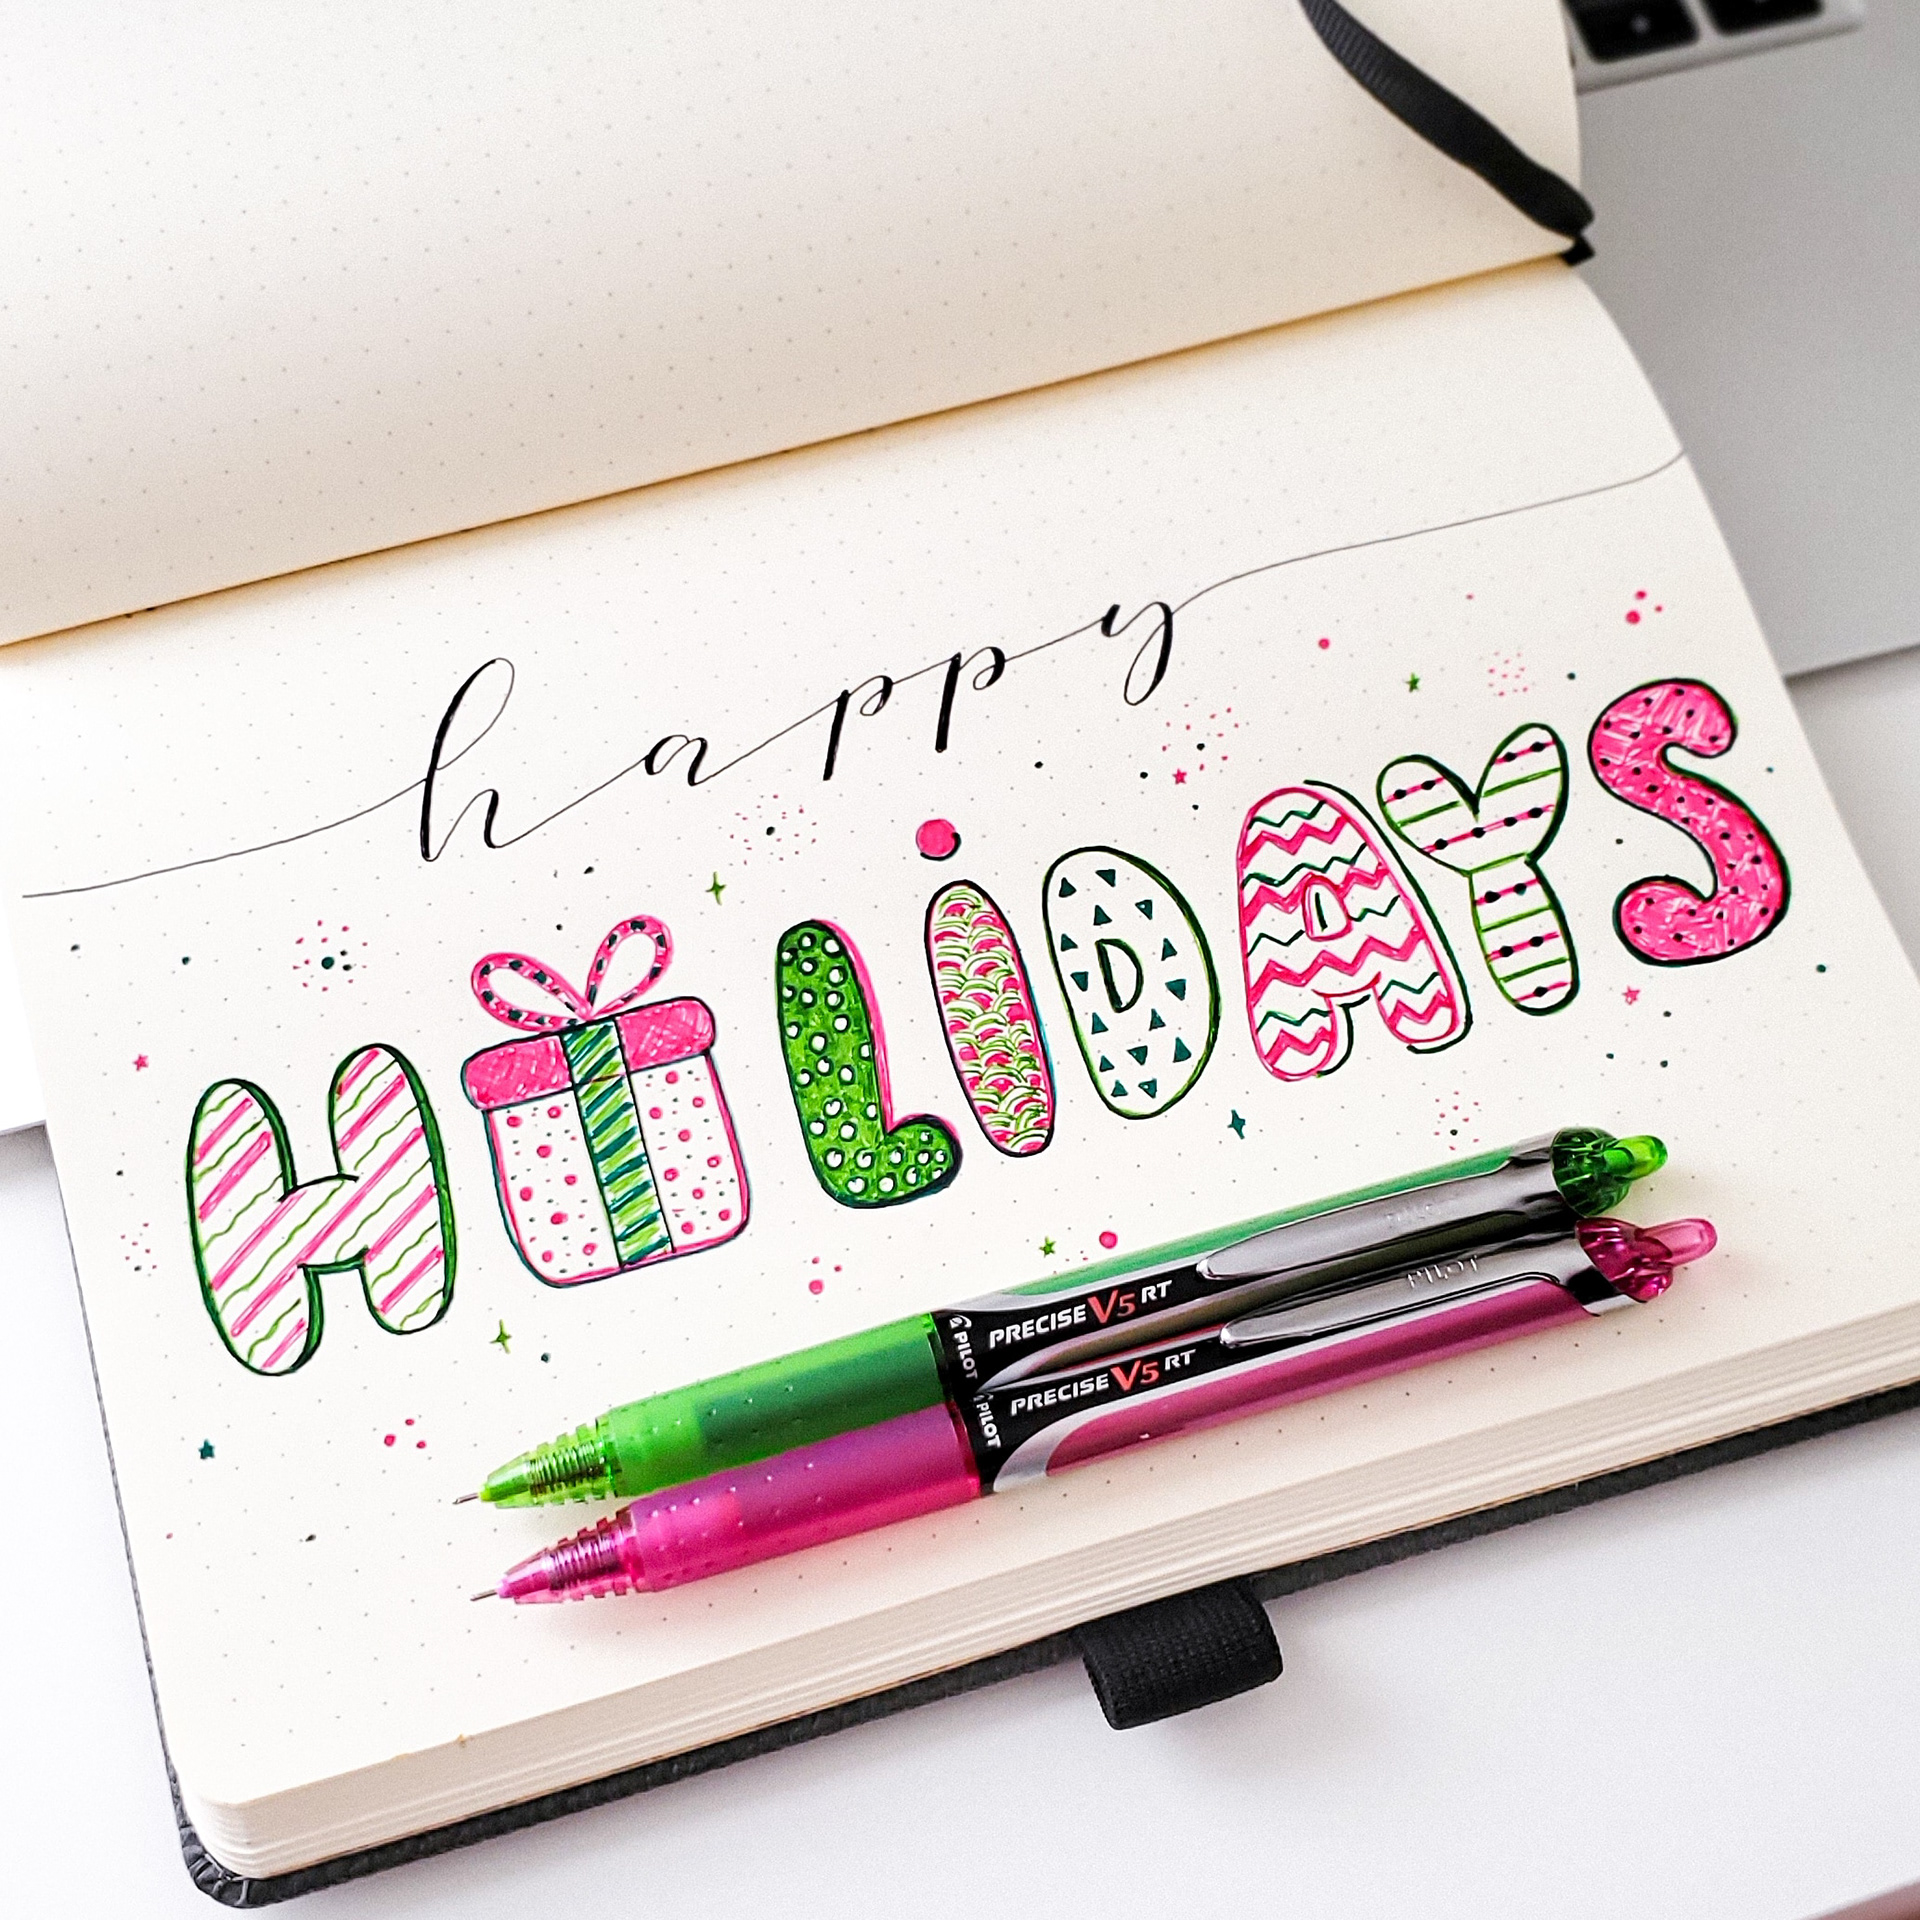 happy
HOLiDAYS
PILOT PRECISE V5 RT PILOT
PILOT PRECISE V5 RT PILOT